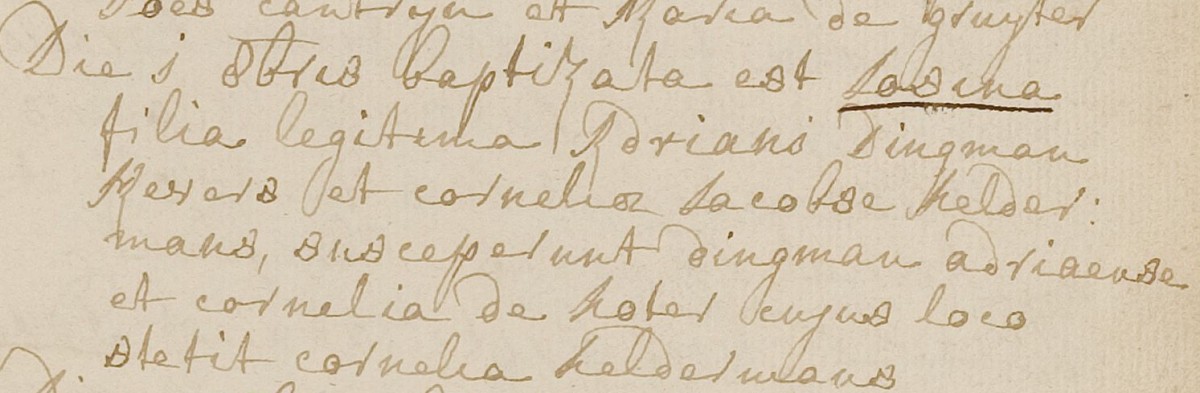 Does cantryn et Maria de gruyter
Die j 8bris baptizata est Josina
filia legitima Adriani Dingman
Mesers et corneliæ Jacobse kelder:
mans, susceperunt dingman adriaense
et cornelia de koter cujus loco
stetit cornelia keldermans